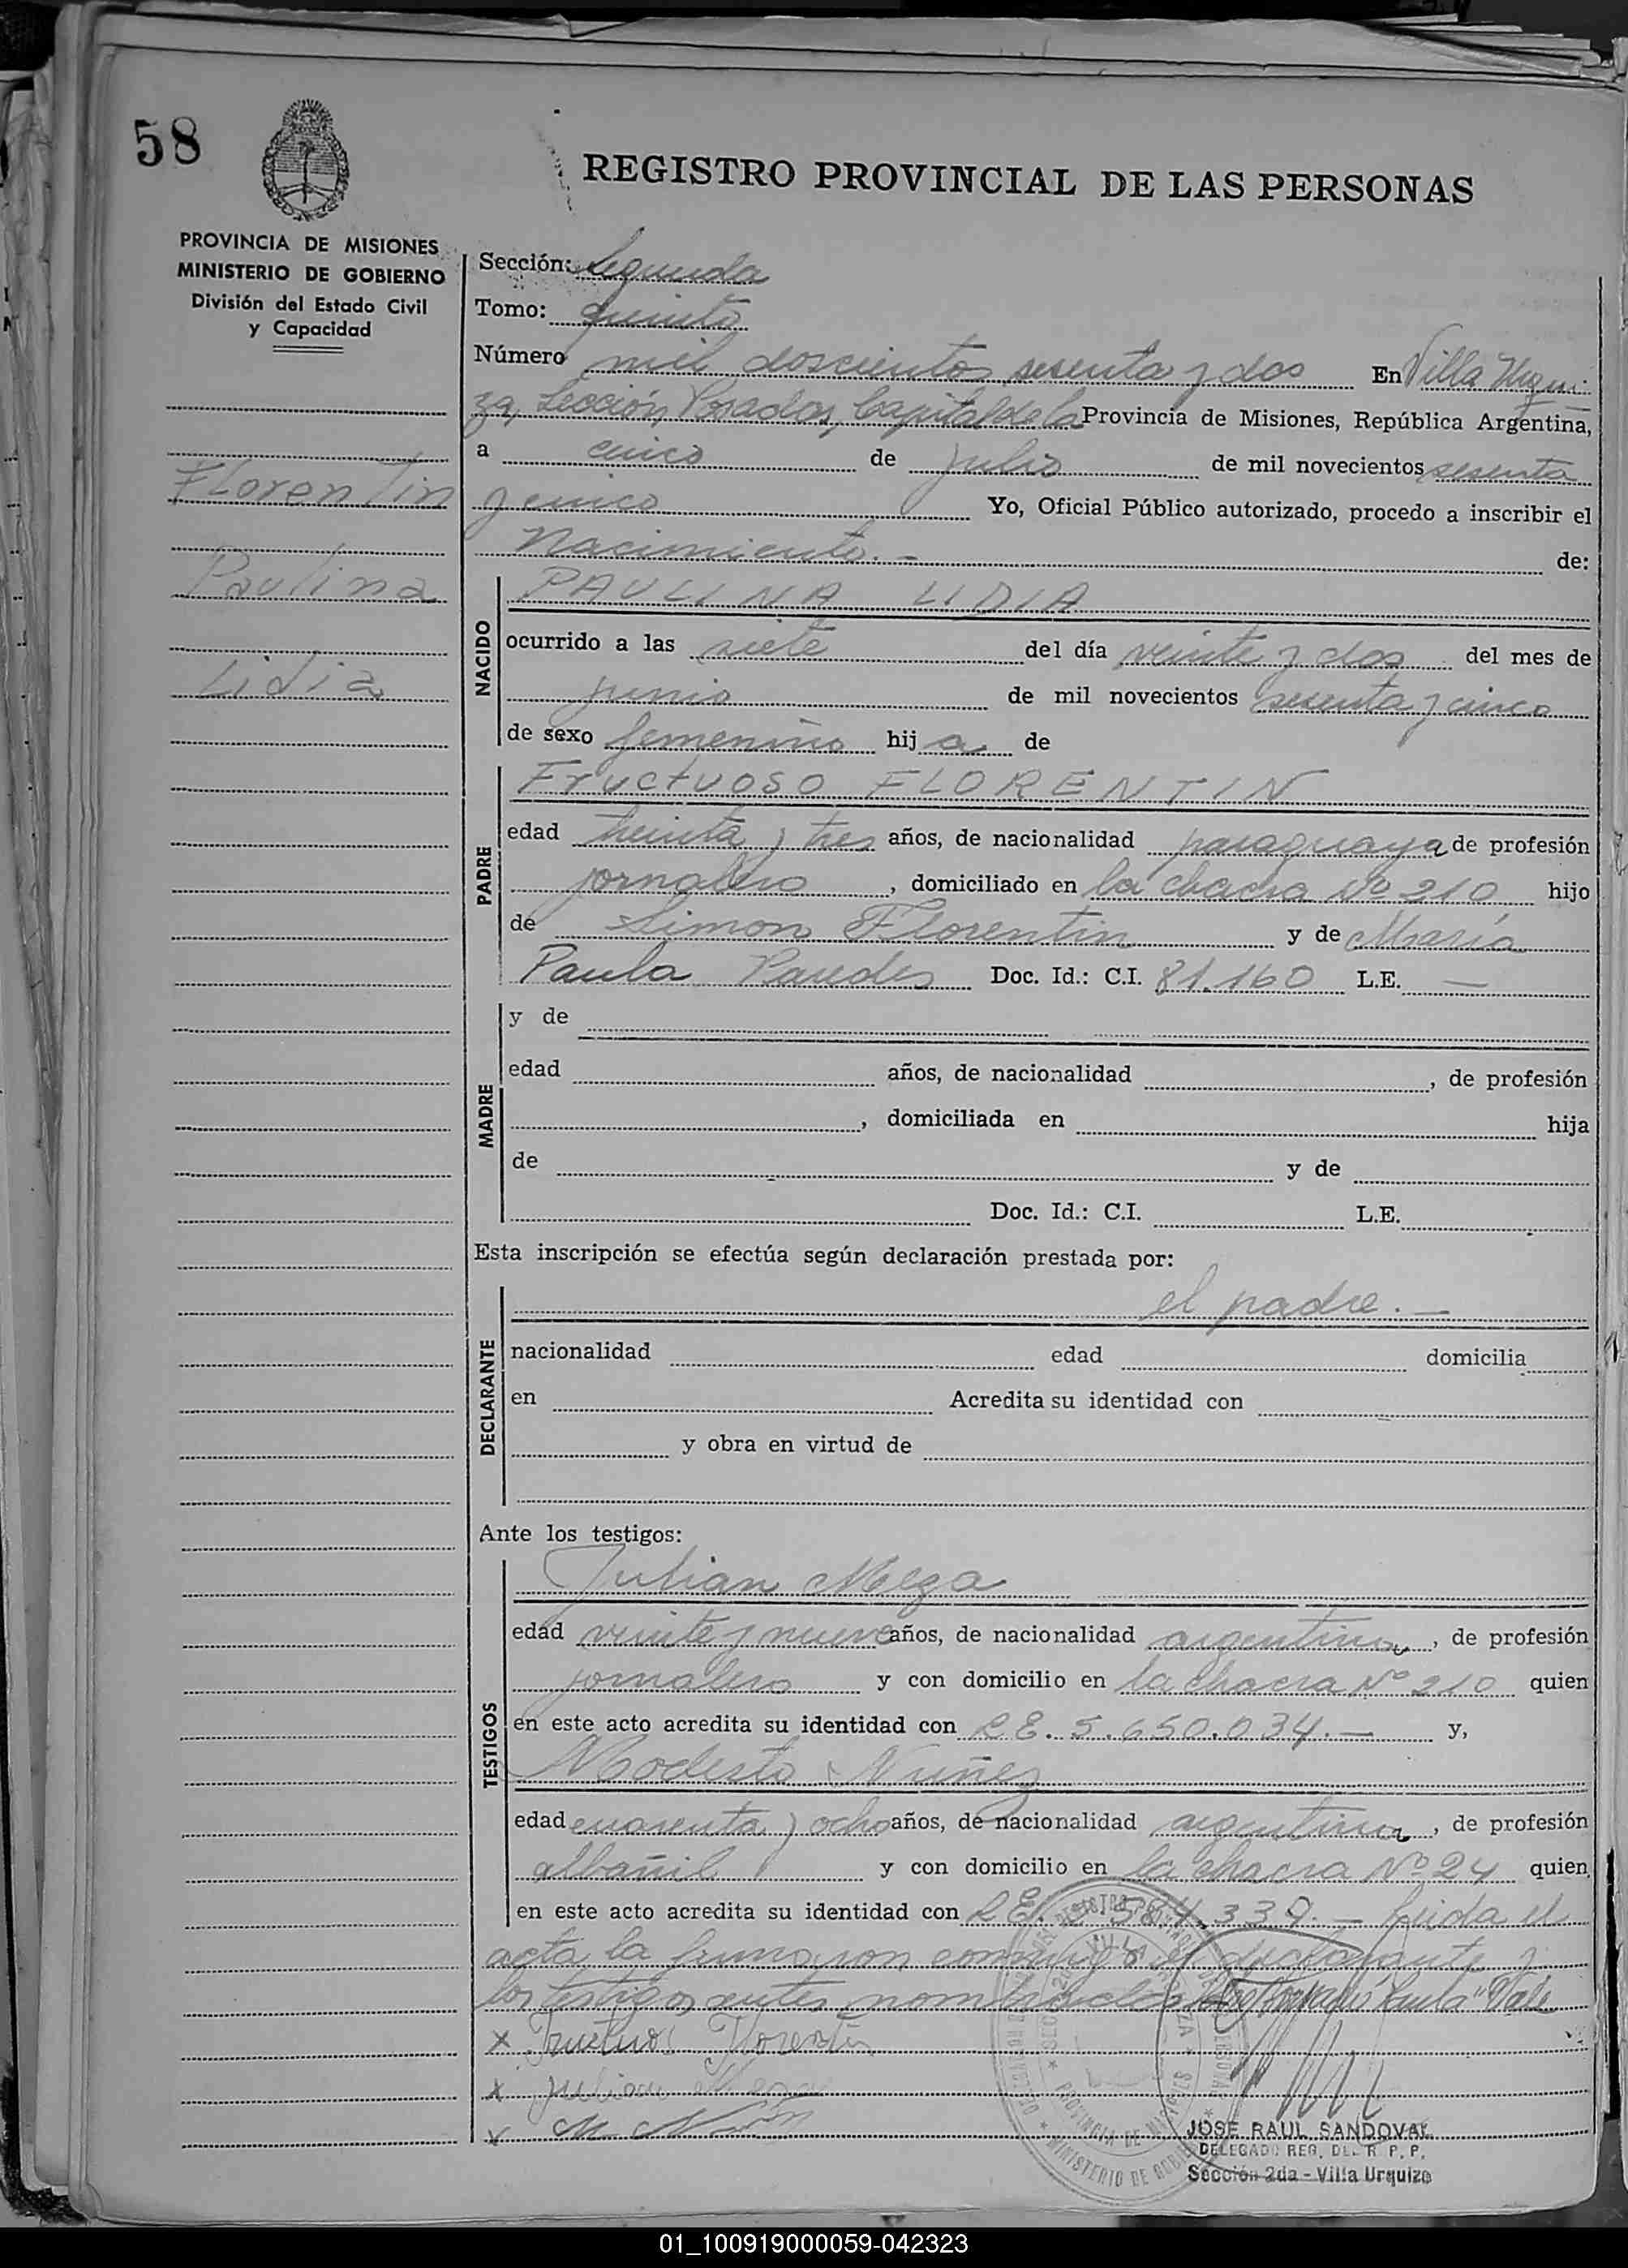 58
REGISTRO PROVINCIAL DE LAS PERSONAS
PROVINCIA DE MISIONES
MINISTERIO DE GOBIERNO
División del Estado Civil
y Capacidad
Florentin
Paulina
Lidia
Sección: Segunda
Tomo: quinto
Número mil doscientos sesenta y dos En Villa Urqui-
za, Sección Posadas, Capital de la Provincia de Misiones, República Argentina,
a cinco de julio de mil novecientos sesenta
y cinco Yo, Oficial Público autorizado, procedo a inscribir el
Nacimiento.- de:
NACIDO
PAULINA LIDIA
ocurrido a las siete del día veinte y dos del mes de
junio de mil novecientos sesenta y cinco
de sexo femenino hij a de
PADRE
Fructuoso FLORENTIN
edad treinta y tres años, de nacionalidad paraguaya de profesión
jornalero, domiciliado en la chacra Nº 210, hijo
de Simon Florentin y de María
Paula Paredes Doc. Id.: C.I. 81.160 L.E. —
MADRE
y de
edad años, de nacionalidad , de profesión
, domiciliada en hija
de y de
Doc. Id.: C.I. L.E.
Esta inscripción se efectúa según declaración prestada por:
DECLARANTE
el padre.—
nacionalidad edad domicilia
en Acredita su identidad con
y obra en virtud de
Ante los testigos:
TESTIGOS
Julian Meza
edad veinte y nueve años, de nacionalidad argentina, de profesión
jornalero y con domicilio en la chacra Nº 210 quien
en este acto acredita su identidad con L.E. 5.650.034.— y,
Modesto Nuñez
edad cuarenta y ocho años, de nacionalidad argentina, de profesión
albañil y con domicilio en la chacra Nº 24 quien
en este acto acredita su identidad con L.E. 584.339.— Leida el
acta la firmaron conmigo el declarante y
los testigos antes nombrados "Paula" Vale
x Fructuoso Florentin
x Julian Meza
x M Nuñez
JOSE RAUL SANDOVAL
DELEGADO REG. DE. R. P. P.
Sección 2da - Villa Urquiza
01_100919000059-042323